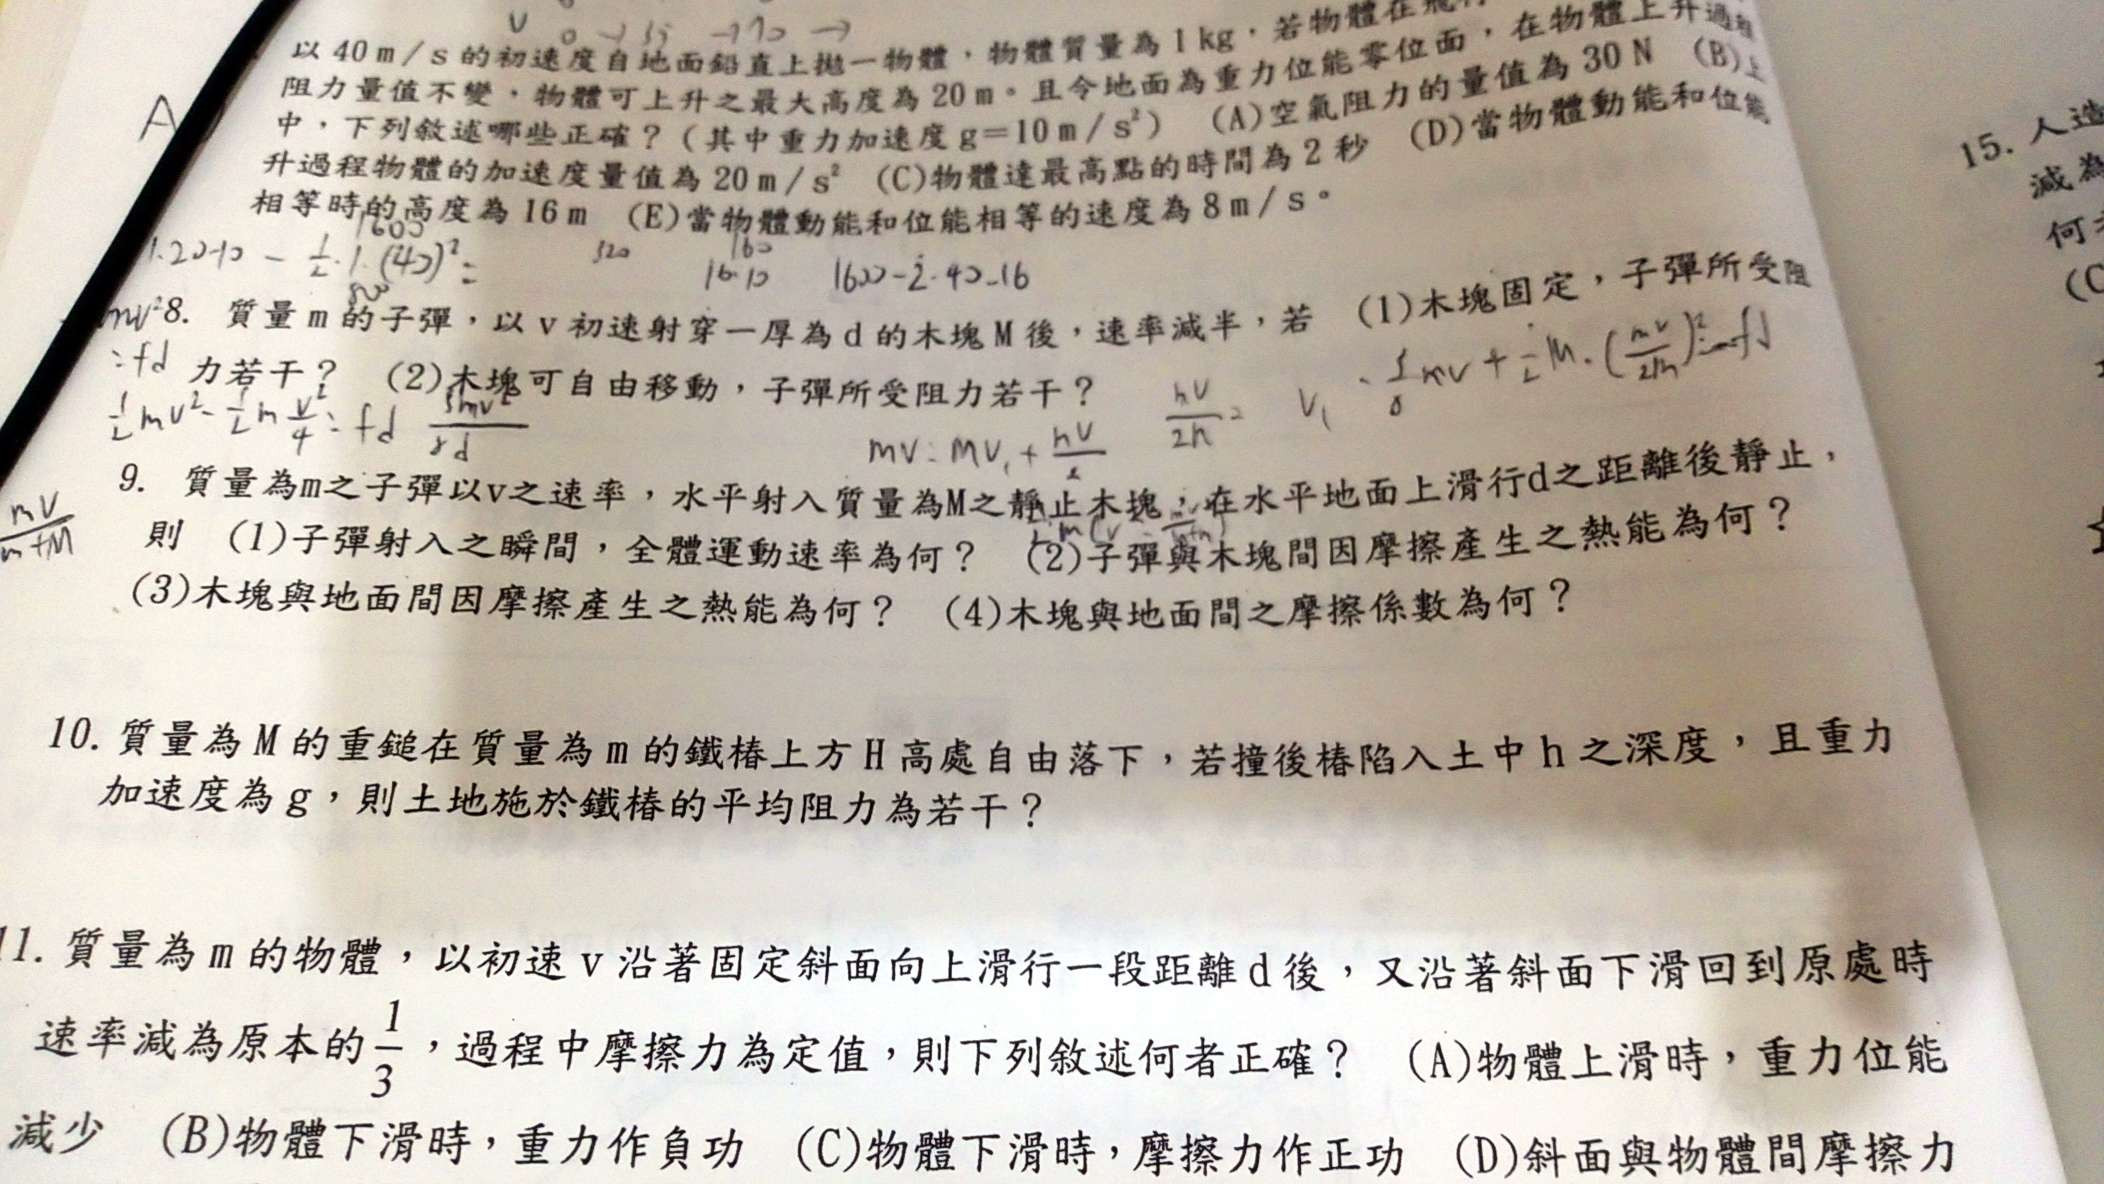 以40m/s的初速度自地面鉛直上拋一物體，物體質量為1kg，若物體在飛行
阻力量值不變，物體可上升之最大高度為20m。且令地面為重力位能零位面，在物體上升過程
中，下列敘述哪些正確？(其中重力加速度g=10m/s²) (A)空氣阻力的量值為30N (B)上
升過程物體的加速度量值為20m/s² (C)物體達最高點的時間為2秒 (D)當物體動能和位能
相等時的高度為16m (E)當物體動能和位能相等的速度為8m/s。
A
1600
320
160
16·10
1600-2·40·16
8. 質量m的子彈，以v初速射穿一厚為d的木塊M後，速率減半，若 (1)木塊固定，子彈所受阻
力若干？ (2)木塊可自由移動，子彈所受阻力若干？
=fd
½mv²-½m v²/4=fd 3mv²/8d
mv=MV₁+mv/2
9. 質量為m之子彈以v之速率，水平射入質量為M之靜止木塊，在水平地面上滑行d之距離後靜止，
則 (1)子彈射入之瞬間，全體運動速率為何？ (2)子彈與木塊間因摩擦產生之熱能為何？
(3)木塊與地面間因摩擦產生之熱能為何？ (4)木塊與地面間之摩擦係數為何？
mv/m+M
10. 質量為M的重鎚在質量為m的鐵樁上方H高處自由落下，若撞後樁陷入土中h之深度，且重力
加速度為g，則土地施於鐵樁的平均阻力為若干？
11. 質量為m的物體，以初速v沿著固定斜面向上滑行一段距離d後，又沿著斜面下滑回到原處時
速率減為原本的1/3，過程中摩擦力為定值，則下列敘述何者正確？ (A)物體上滑時，重力位能
減少 (B)物體下滑時，重力作負功 (C)物體下滑時，摩擦力作正功 (D)斜面與物體間摩擦力
15. 人造
減為
何
(C